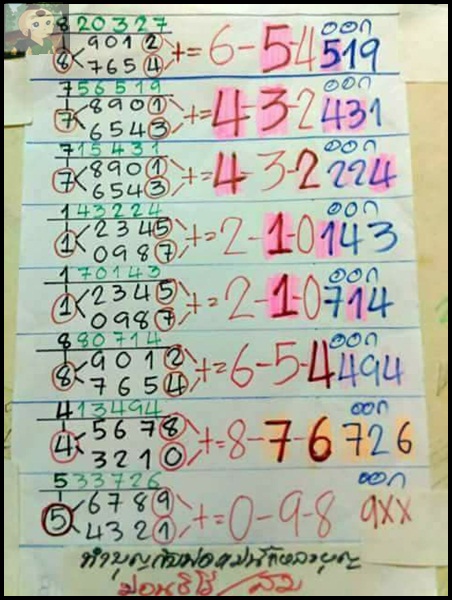 820327 ออก
8 9012 7654 += 6-5-4 519
756519 ออก
7 8901 6543 += 4-3-2 431
715431 ออก
7 8901 6543 += 4-3-2 224
143224 ออก
1 2345 0987 += 2-1-0 143
170143 ออก
1 2345 0987 += 2-1-0 714
880714 ออก
8 9012 7654 += 6-5-4 494
413494 ออก
4 5678 3210 += 8-7-6 726
533726 ออก
5 6789 4321 += 0-9-8 9xx
ทำบุญกับ